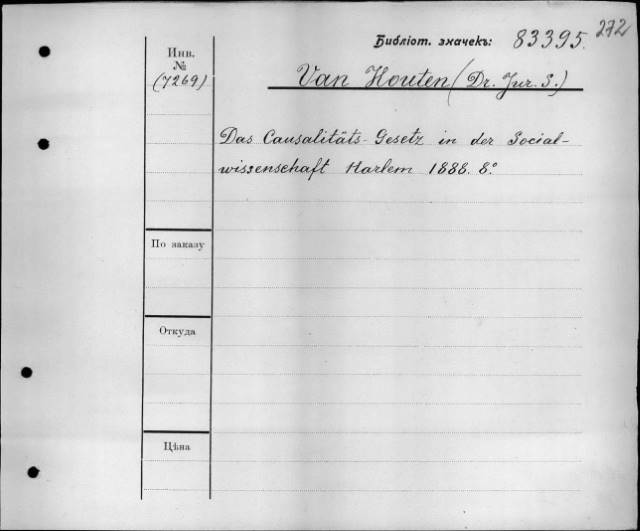 272
Библіот. значекъ: 83395.
Инв.
№
(7269)
Van Houten (Dr. Jur. S.)
Das Causalitäts-Gesetz in der Social-
wissenschaft Harlem 1888. 8.°
По заказу
Откуда
Цѣна